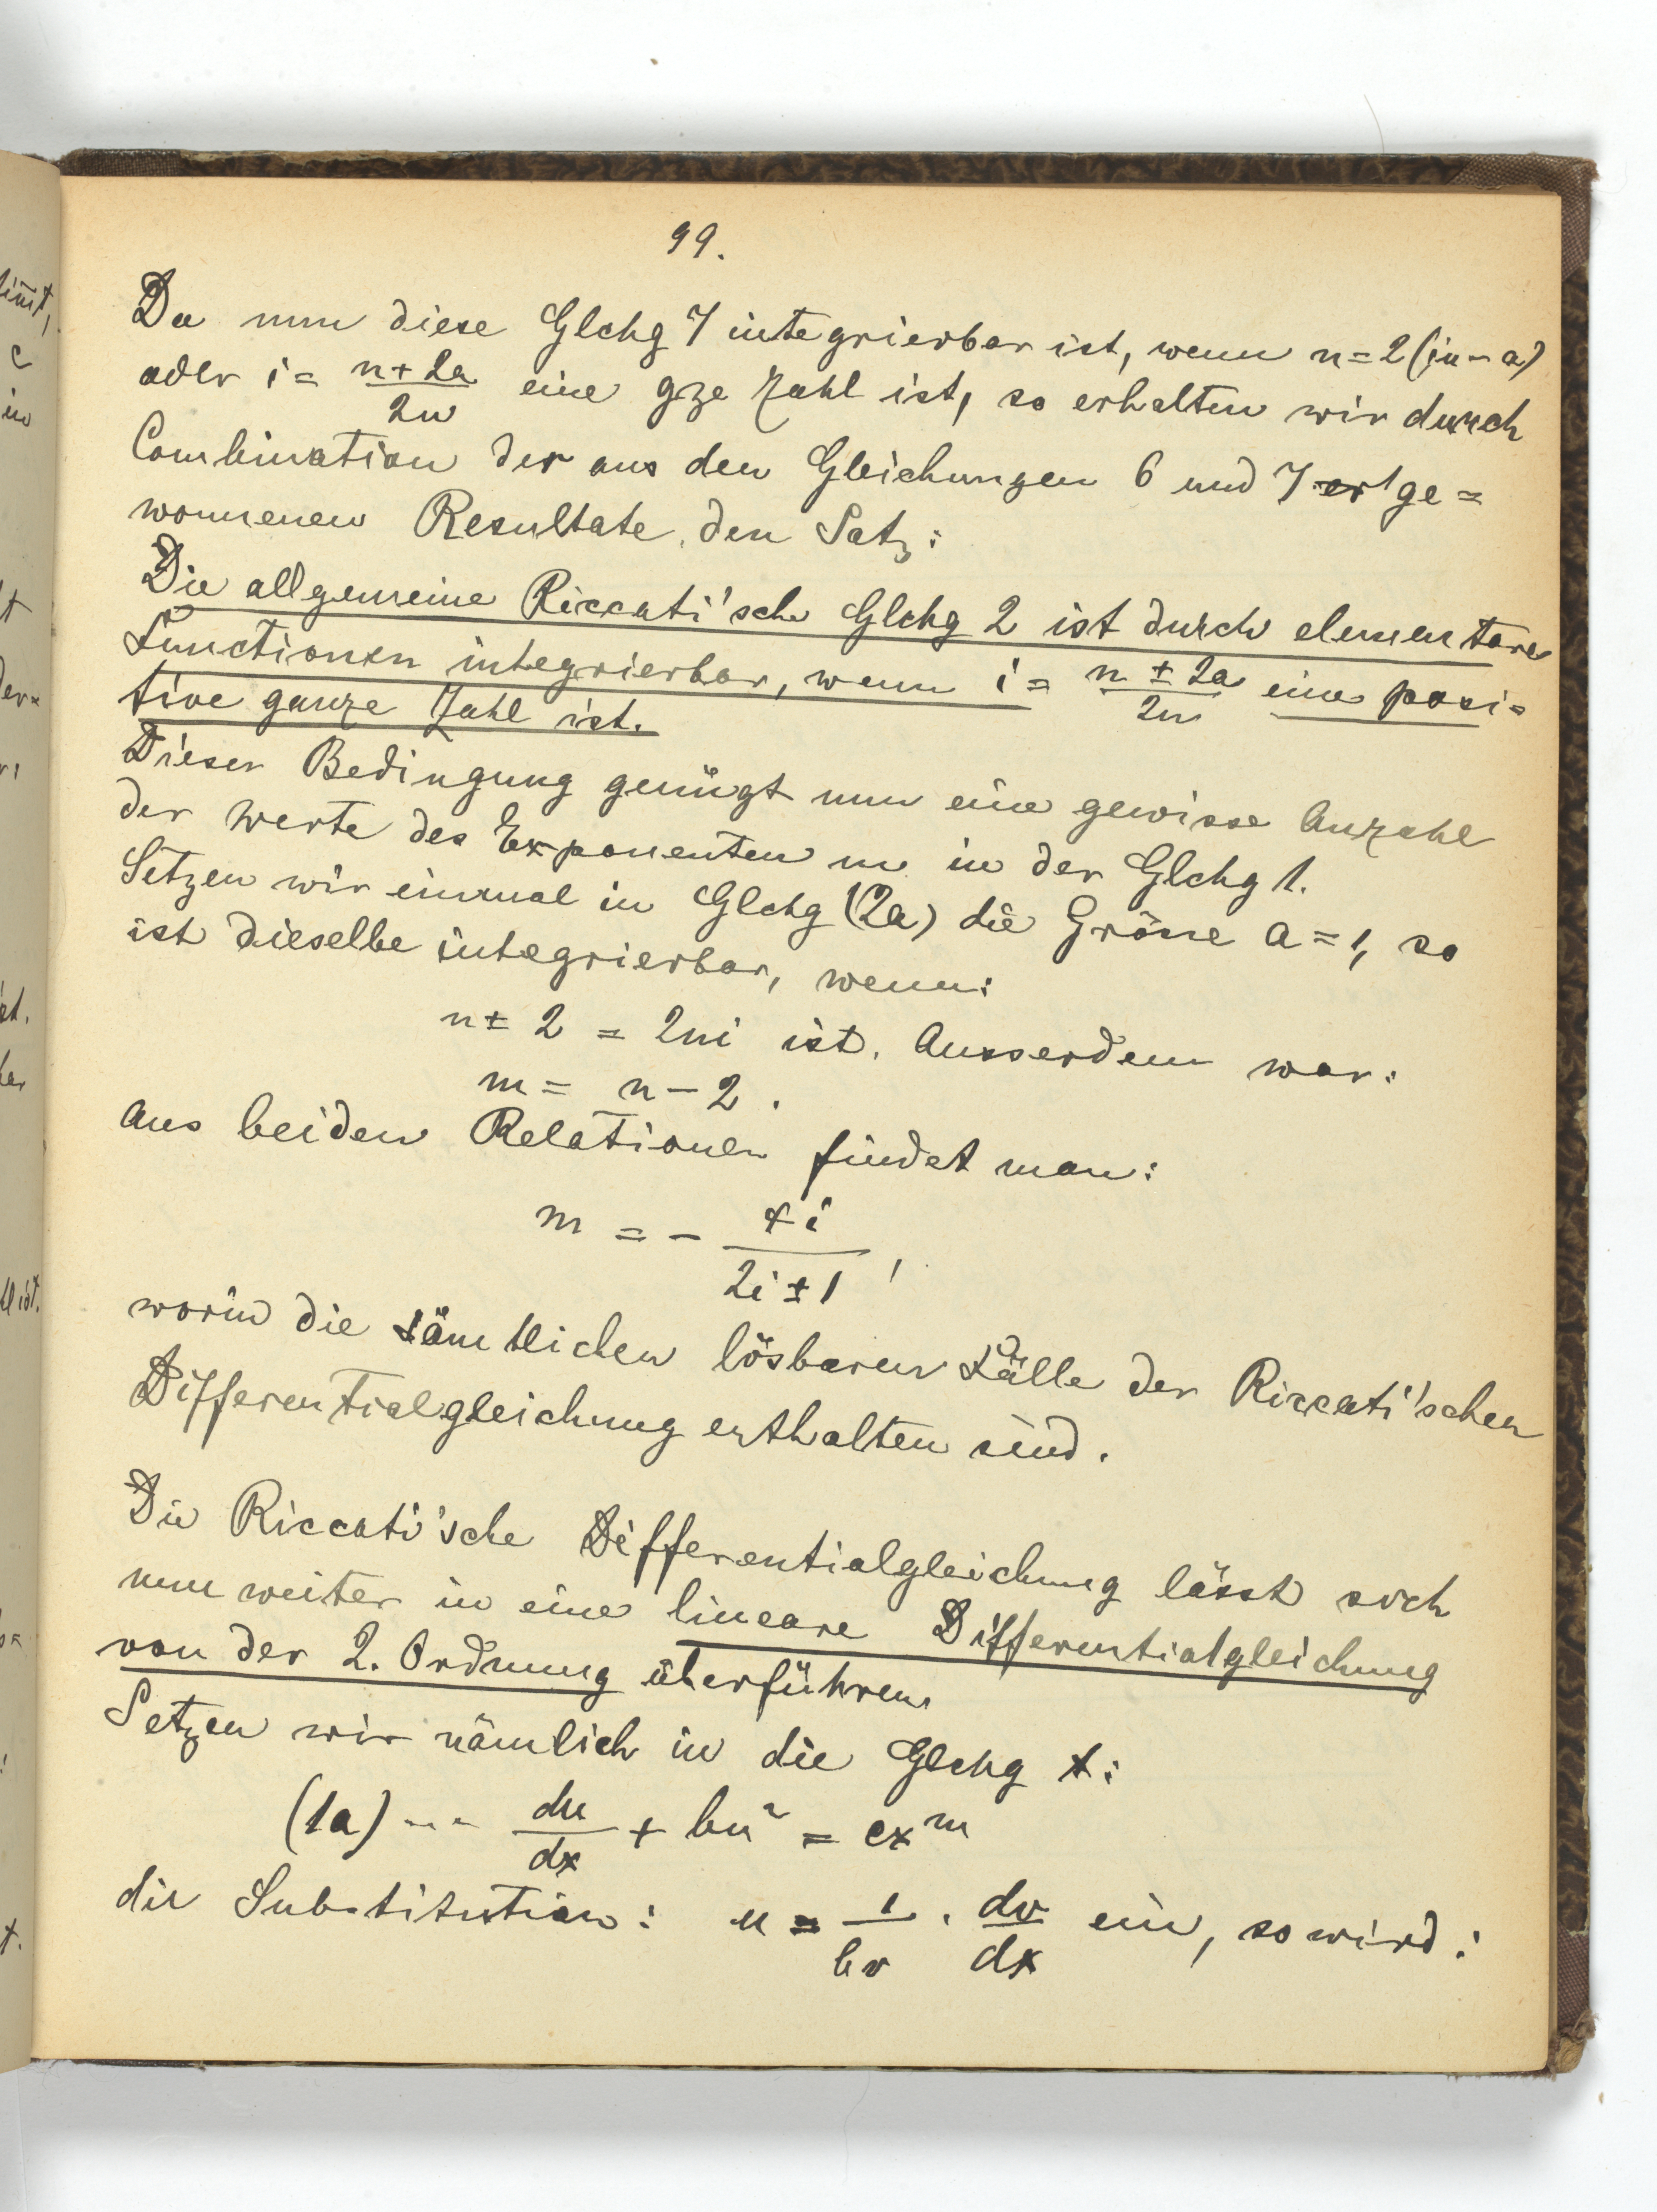 99.
Da nun diese Glchg 7 integrierbar ist, wenn n = 2(in - a)
oder i = (n + 2a)/(2n) eine gze Zahl ist, so erhalten wir durch
Combination der aus den Gleichungen 6 und 7 ge=
wonnenen Resultate den Satz:
Die allgemeine Riccati'sche Glchg 2 ist durch elementare
Functionen integrierbar, wenn i = (n ± 2a)/(2n) eine posi=
tive ganze Zahl ist.
Dieser Bedingung genügt nun eine gewisse Anzahl
der Werte des Exponenten m in der Glchg 1.
Setzen wir einmal in Glchg (2a) die Grösse a = 1, so
ist dieselbe integrierbar, wenn:
n ± 2 = 2ni ist. Ausserdem war:
m = n - 2.
Aus beiden Relationen findet man:
m = - 4i/(2i ± 1),
worin die sämtlichen lösbaren Fälle der Riccati'schen
Differentialgleichung enthalten sind.
Die Riccati'sche Differentialgleichung lässt sich
nun weiter in eine lineare Differentialgleichung
von der 2. Ordnung überführen.
Setzen wir nämlich in die Glchg 1:
(1a) --- du/dx + bu² = cx^m
die Substitution: u = 1/(bv) · dv/dx ein, so wird: